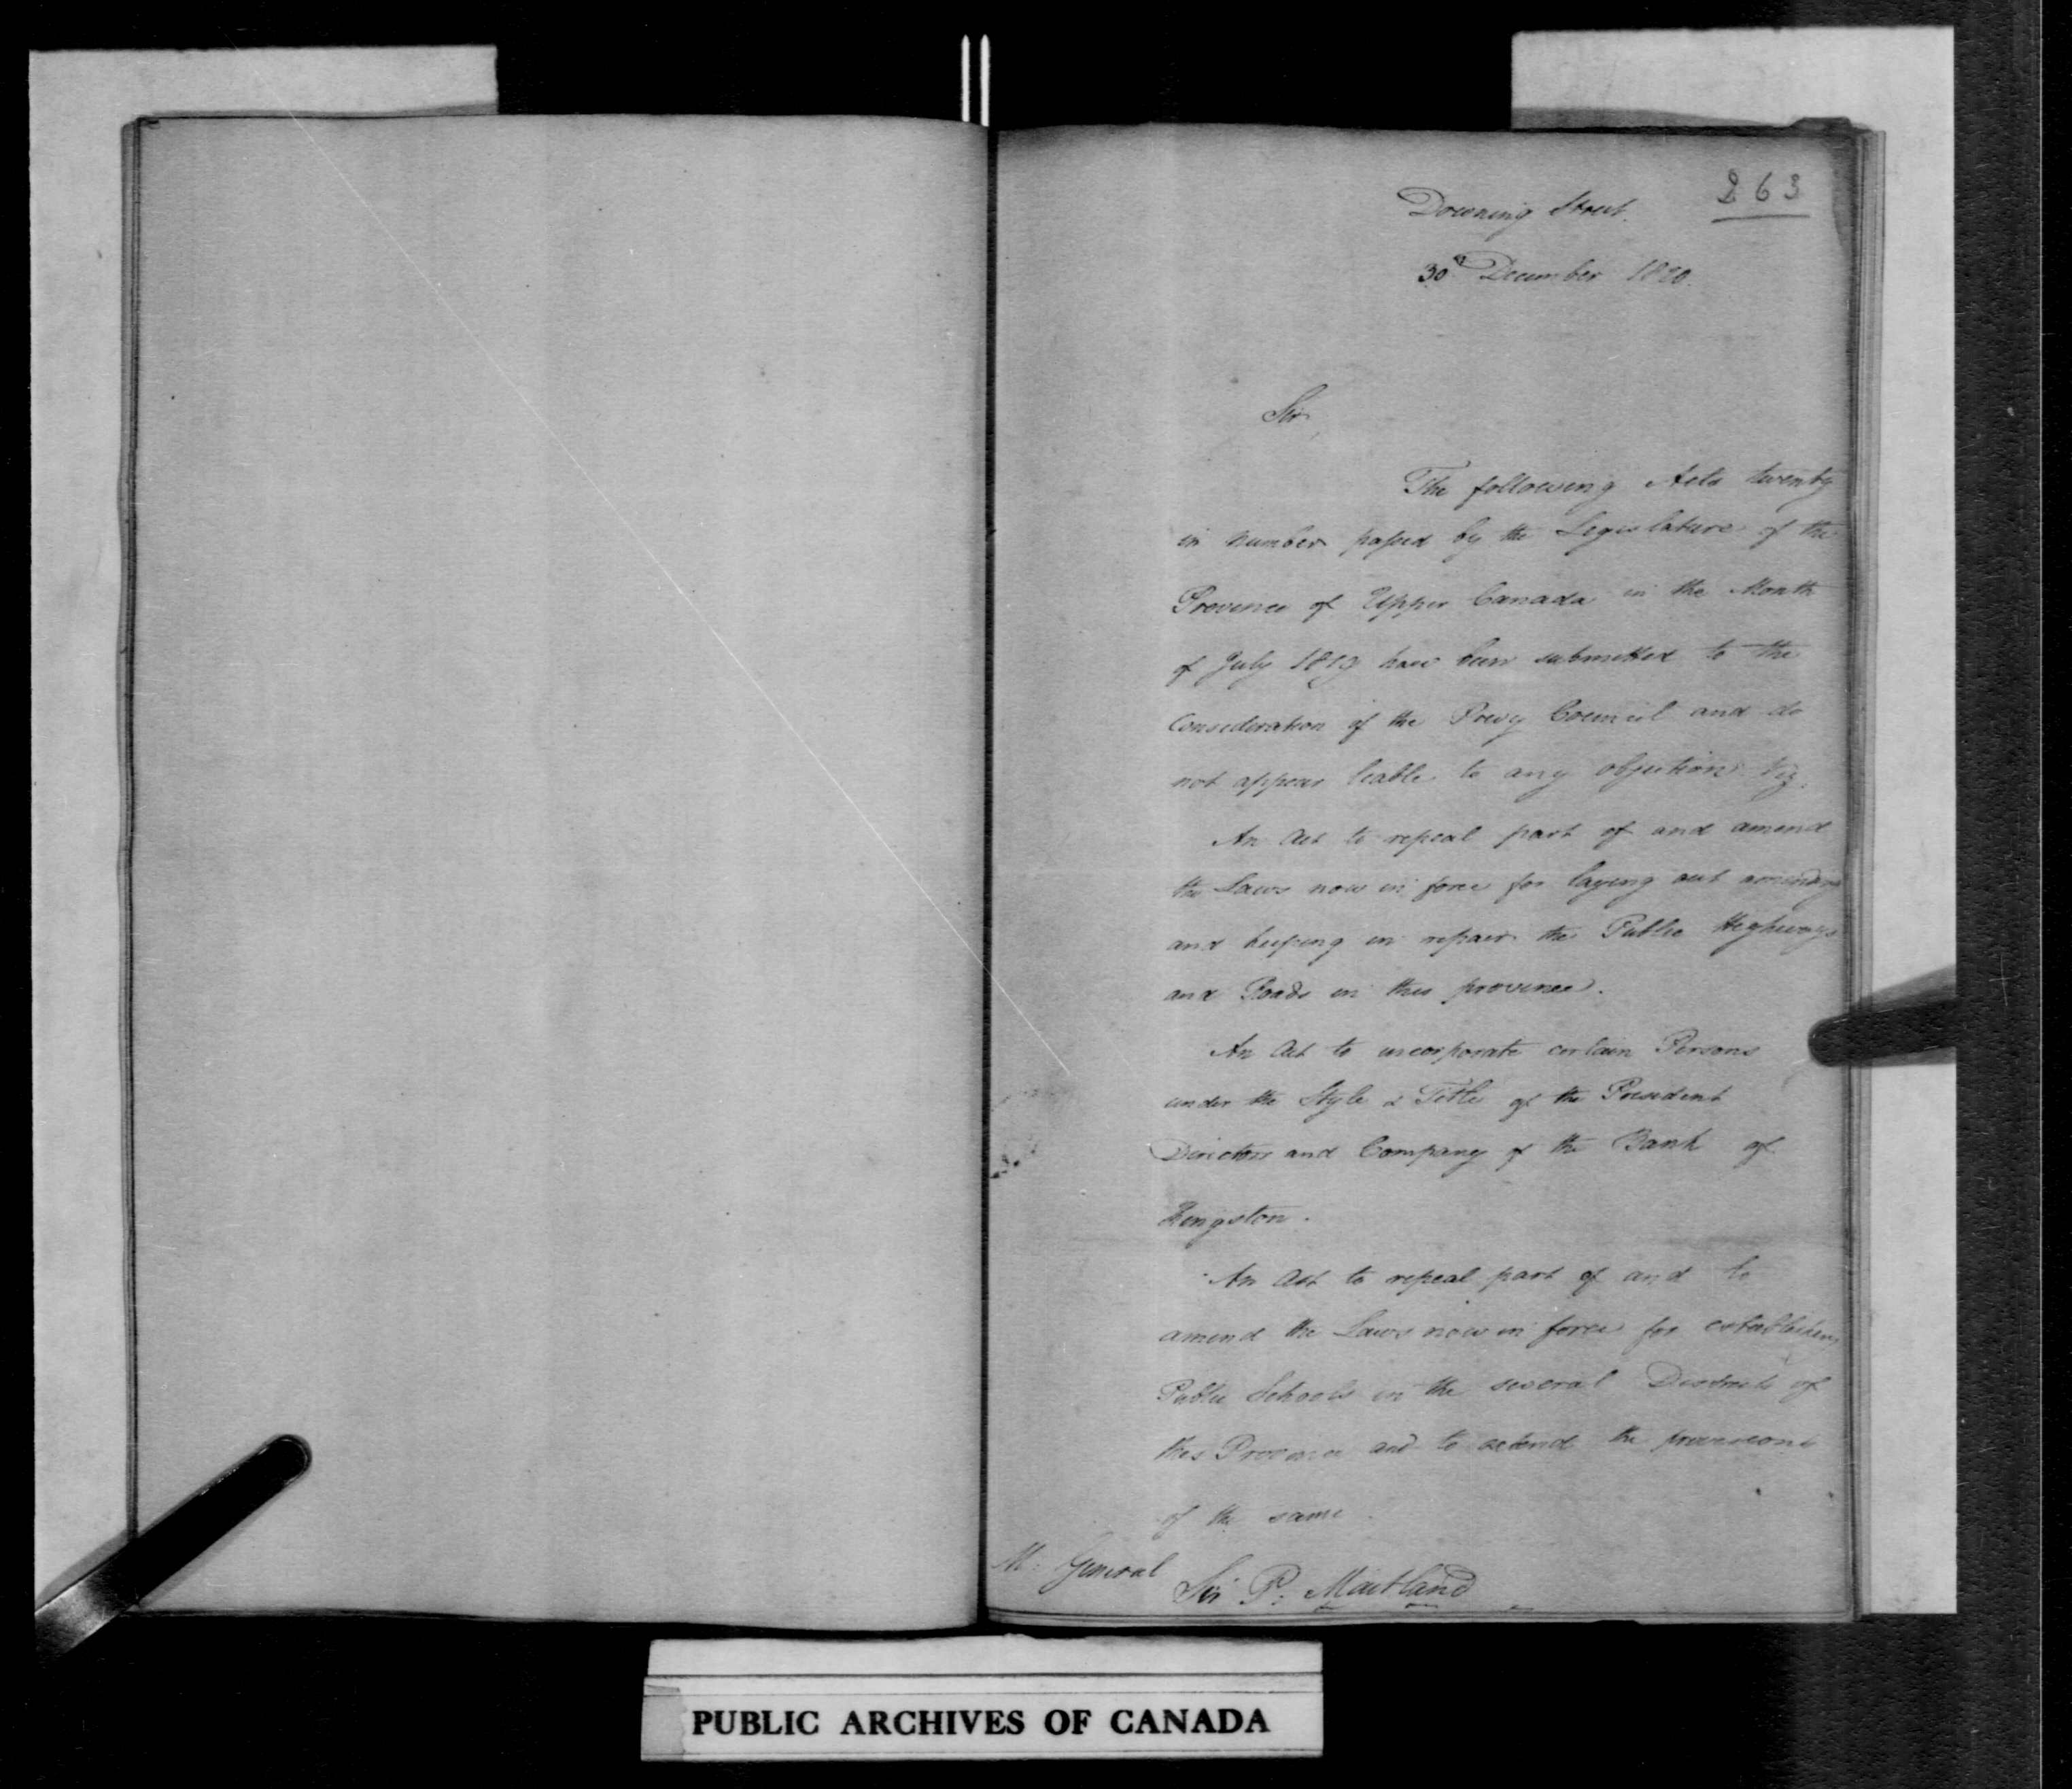 263
Downing Street.
30th December 1820.
Sir
The following Acts twenty
in number passed by the Legislature of the
Province of Upper Canada in the Month
of July 1819 have been submitted to the
Consideration of the Privy Council and do
not appear liable to any objection Viz.
An Act to repeal part of and amend
the Laws now in force for laying out amending
and keeping in repair the Public Highways
and Roads in this province.
An Act to incorporate certain Persons
under the Style & Title of the President
Directors and Company of the Bank of
Kingston.
An Act to repeal part of and to
amend the Laws now in force for establishing
Public Schools in the several Districts of
this Province and to extend the provisions
of the same.
M. General
Sir P. Maitland
PUBLIC ARCHIVES OF CANADA